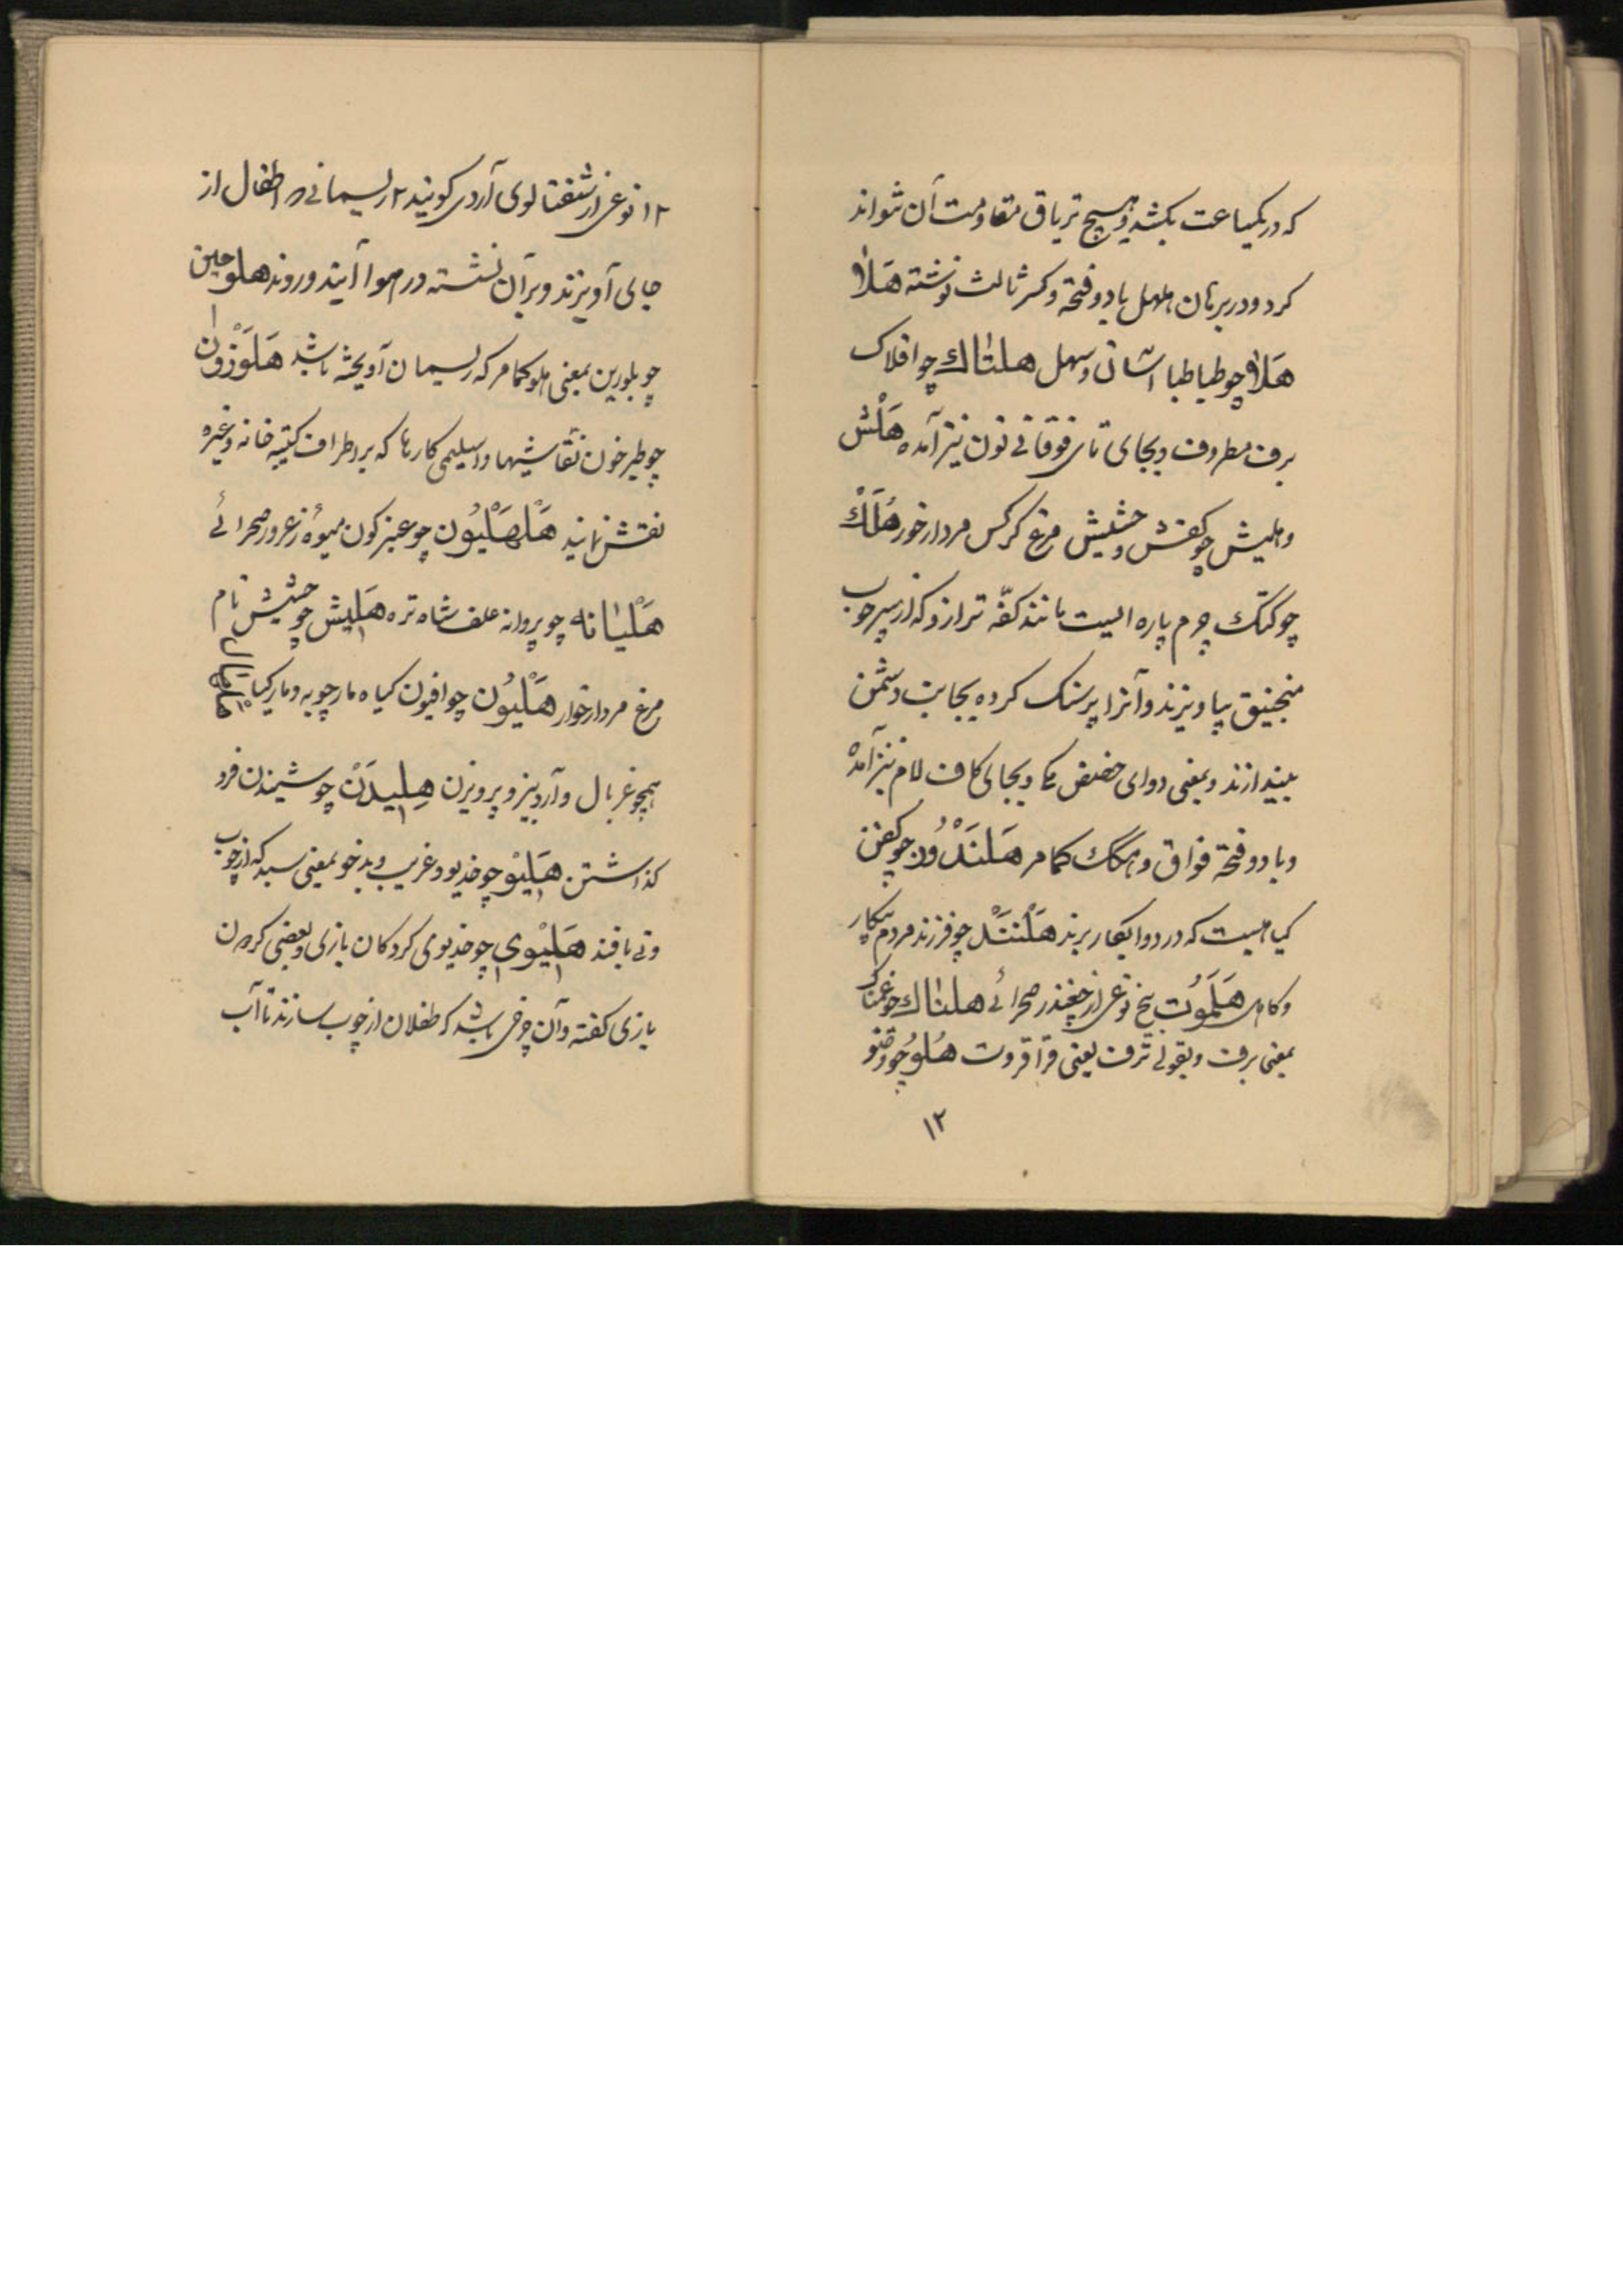 که در یکساعت بکشد و هیچ تریاق مقاومت آن نتواند
کرد و در برهان هلهل با دو فتحه و کسر ثالث نوشته هَلاٰ
هَلاٰ چو طباطبا آسان و سهل هلتٰاك چو افلاک
برف مطروف و بجای تای فوقانی نون نیز آمده هَلْش
و هلیش چو کفش و حشیش مرغ کرکس مردارخور هُلَلْك
چو کتک چرم پاره ایست مانند کفّه ترازو که از سیر چوب
منجنیق بیاویزند و آنرا پر سنک کرده بجانب دشمن
بیندازند و بمعنی دوای حضض مکی و بجای کاف لام نیز آمده
و با دو فتحة فواق و هکک کمامر هَلَنَدْوُن چو کفن
کیاهیست که در دوا بکار برند هَلَنْنَدْ چو فرزند مردم بیکار
و کاهل هَلَمَوُت بیخ نوعی از چغندر صحرائی هلنٰاك چو غمناک
بمعنی برف و بقولی ترف یعنی قراقروت هُلوُ چو وضو
۱۲
۱۲ نوعی از شفتالوی آردی کویند ۲ ریسمانی که اطفال از
جای آویزند و بر آن نشسته در هوا آیند و روند هلوجین
چو بلورین بمعنی هلو کمامر که ریسمان آویخته باشد هَلَوْزوُن
چو طبرخون نقاشیها و اسلیمی کاریها که بر اطراف کتیبه خانه و غیره
نقش نمایند هَلْهَلْیوُن چو عنبرکون میوهٔ زعرور صحرائی
هَلْیٰانه چو پروانه علف شاه تره هَلیش چو حشیش نام
مرغ مردارخوار هَلْیوُن چو افیون کیاه مارچوبه و مارکیا
همچو غربال و آردبیز و پرویزن هِلیدَنْ چو شیندن فرو
کذاشتن هَلیْو چو خدیو و غریب و بدخو بمعنی سبد که از چوب
و نی بافند هَلیْوی چو خدیوی کردکان بازی و بعضی کردن
بازی کفته و آن چرخی باشد که طفلان از چوب سازند تا آب